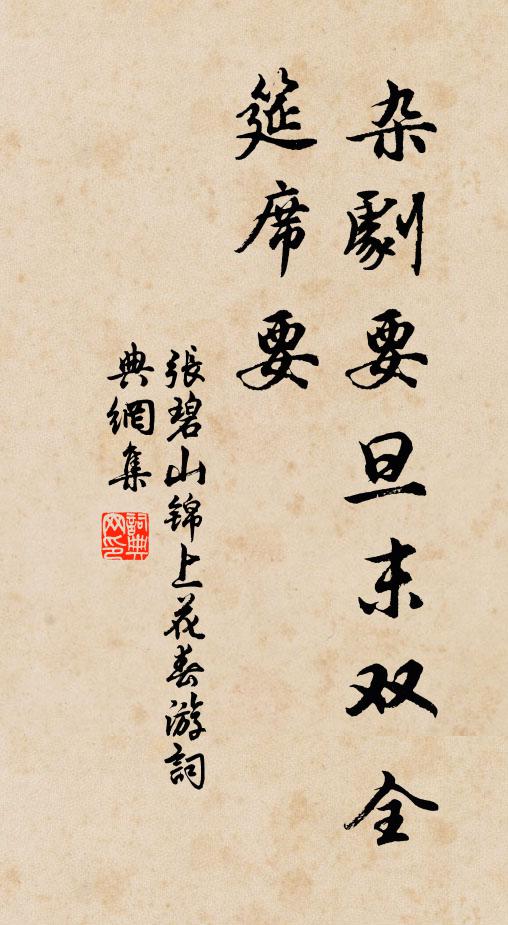 杂劇要旦末双全
筵席要
張碧山锦上花春游詞
典網集
詞典
网印